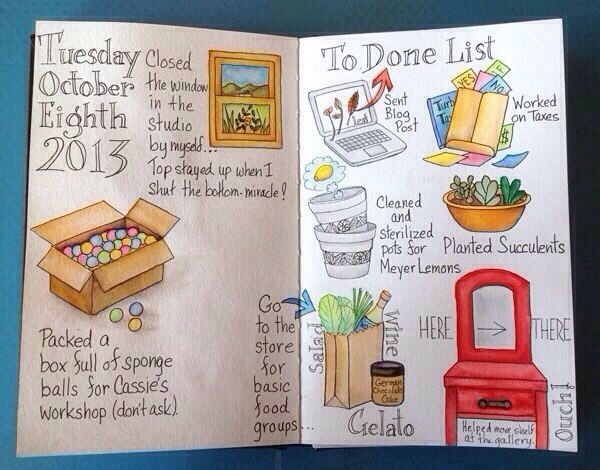 Tuesday
October
Eighth
2013
Closed
the window
in the
studio
by myself...
Top stayed up when I
shut the bottom-miracle!
Packed a
box full of sponge
balls for Cassie's
workshop (don't ask).
Go
to the
store
for
basic
food
groups...
To Done List
Sent
Blog
Post
YES
NO
Turb
Ta
$
Worked
on Taxes
Cleaned
and
sterilized
pots for
Meyer Lemons
Planted Succulents
Salad
Wine
German
Chocolate
Cake
Gelato
HERE
THERE
Helped move shelf
at the gallery.
Ouch!